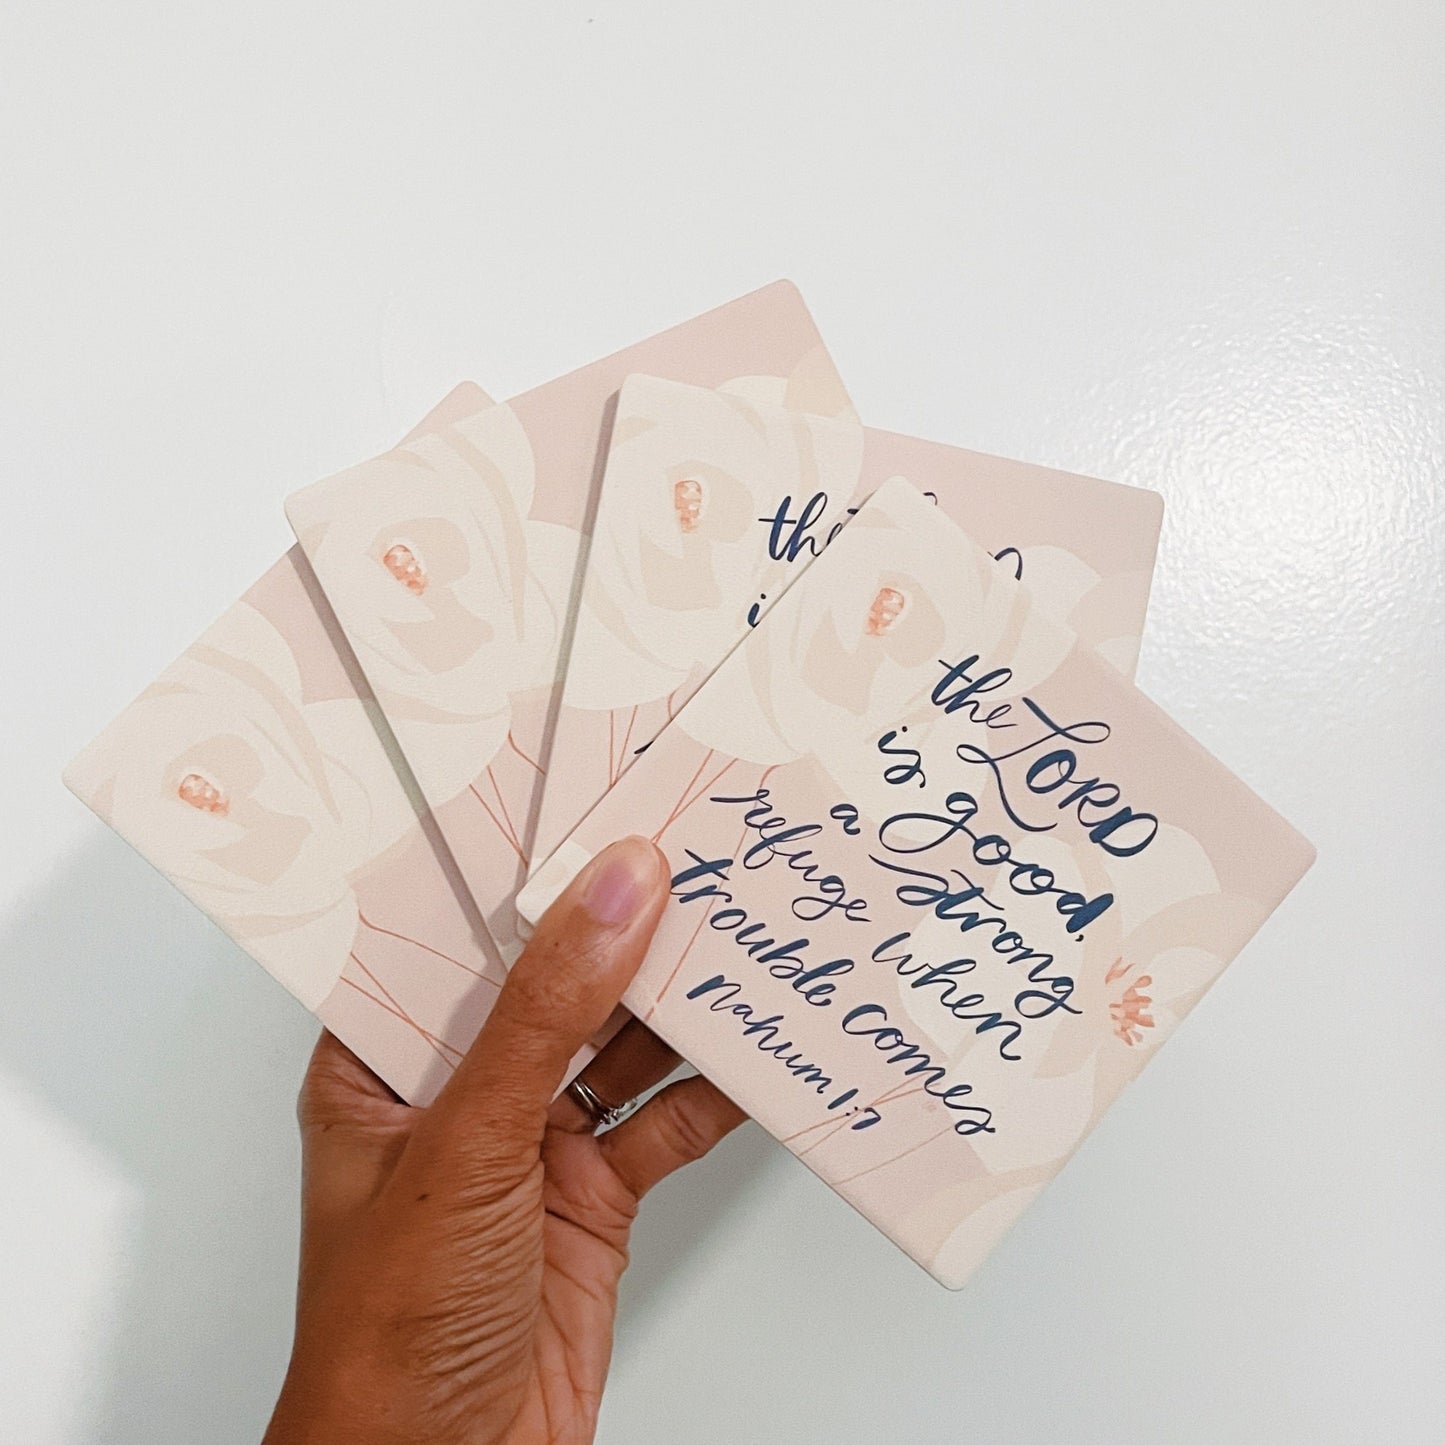 the
i
the LORD
is good,
a strong
refuge when
trouble comes
Nahum 1:7